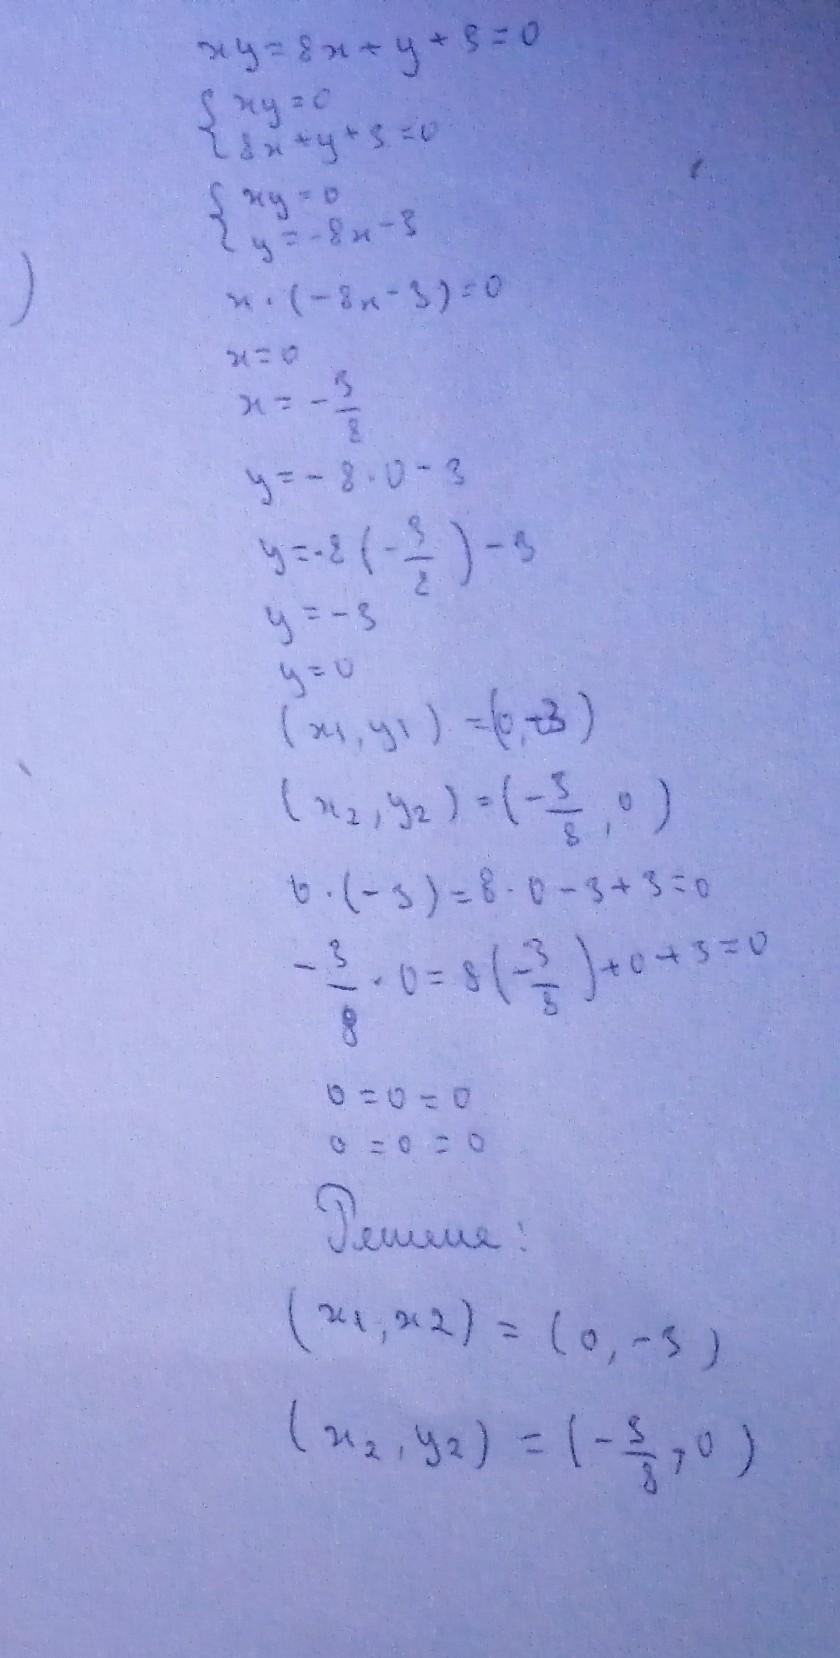 xy=8x+y+3=0
{xy=0
{8x+y+3=0
{xy=0
{y=-8x-3
)
x·(-8x-3)=0
x=0
x=-3/8
y=-8·0-3
y=-8(-3/8)-3
y=-3
y=0
(x1,y1)=(0,-3)
(x2,y2)=(-3/8,0)
0·(-3)=8·0-3+3=0
-3/8·0=8(-3/8)+0+3=0
0=0=0
0=0=0
Решение:
(x1,x2)=(0,-3)
(x2,y2)=(-3/8,0)